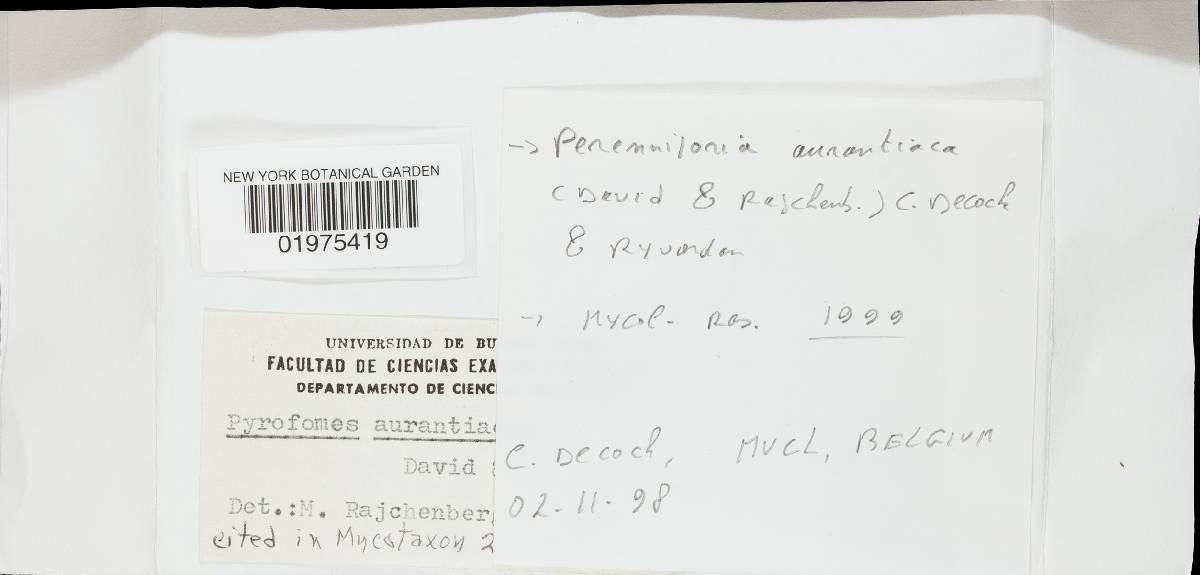 NEW YORK BOTANICAL GARDEN
01975419
UNIVERSIDAD DE BU
FACULTAD DE CIENCIAS EXA
DEPARTAMENTO DE CIENC
Pyrofomes aurantiac
David &
Det.: M. Rajchenberg
cited in Mycotaxon 2
-> Perenniporia aurantiaca
(David & Rajchenb.) C. Decock
& Ryvarden
-> Mycol. Res. 1999
C. Decock, MUCL, BELGIUM
02-11-98